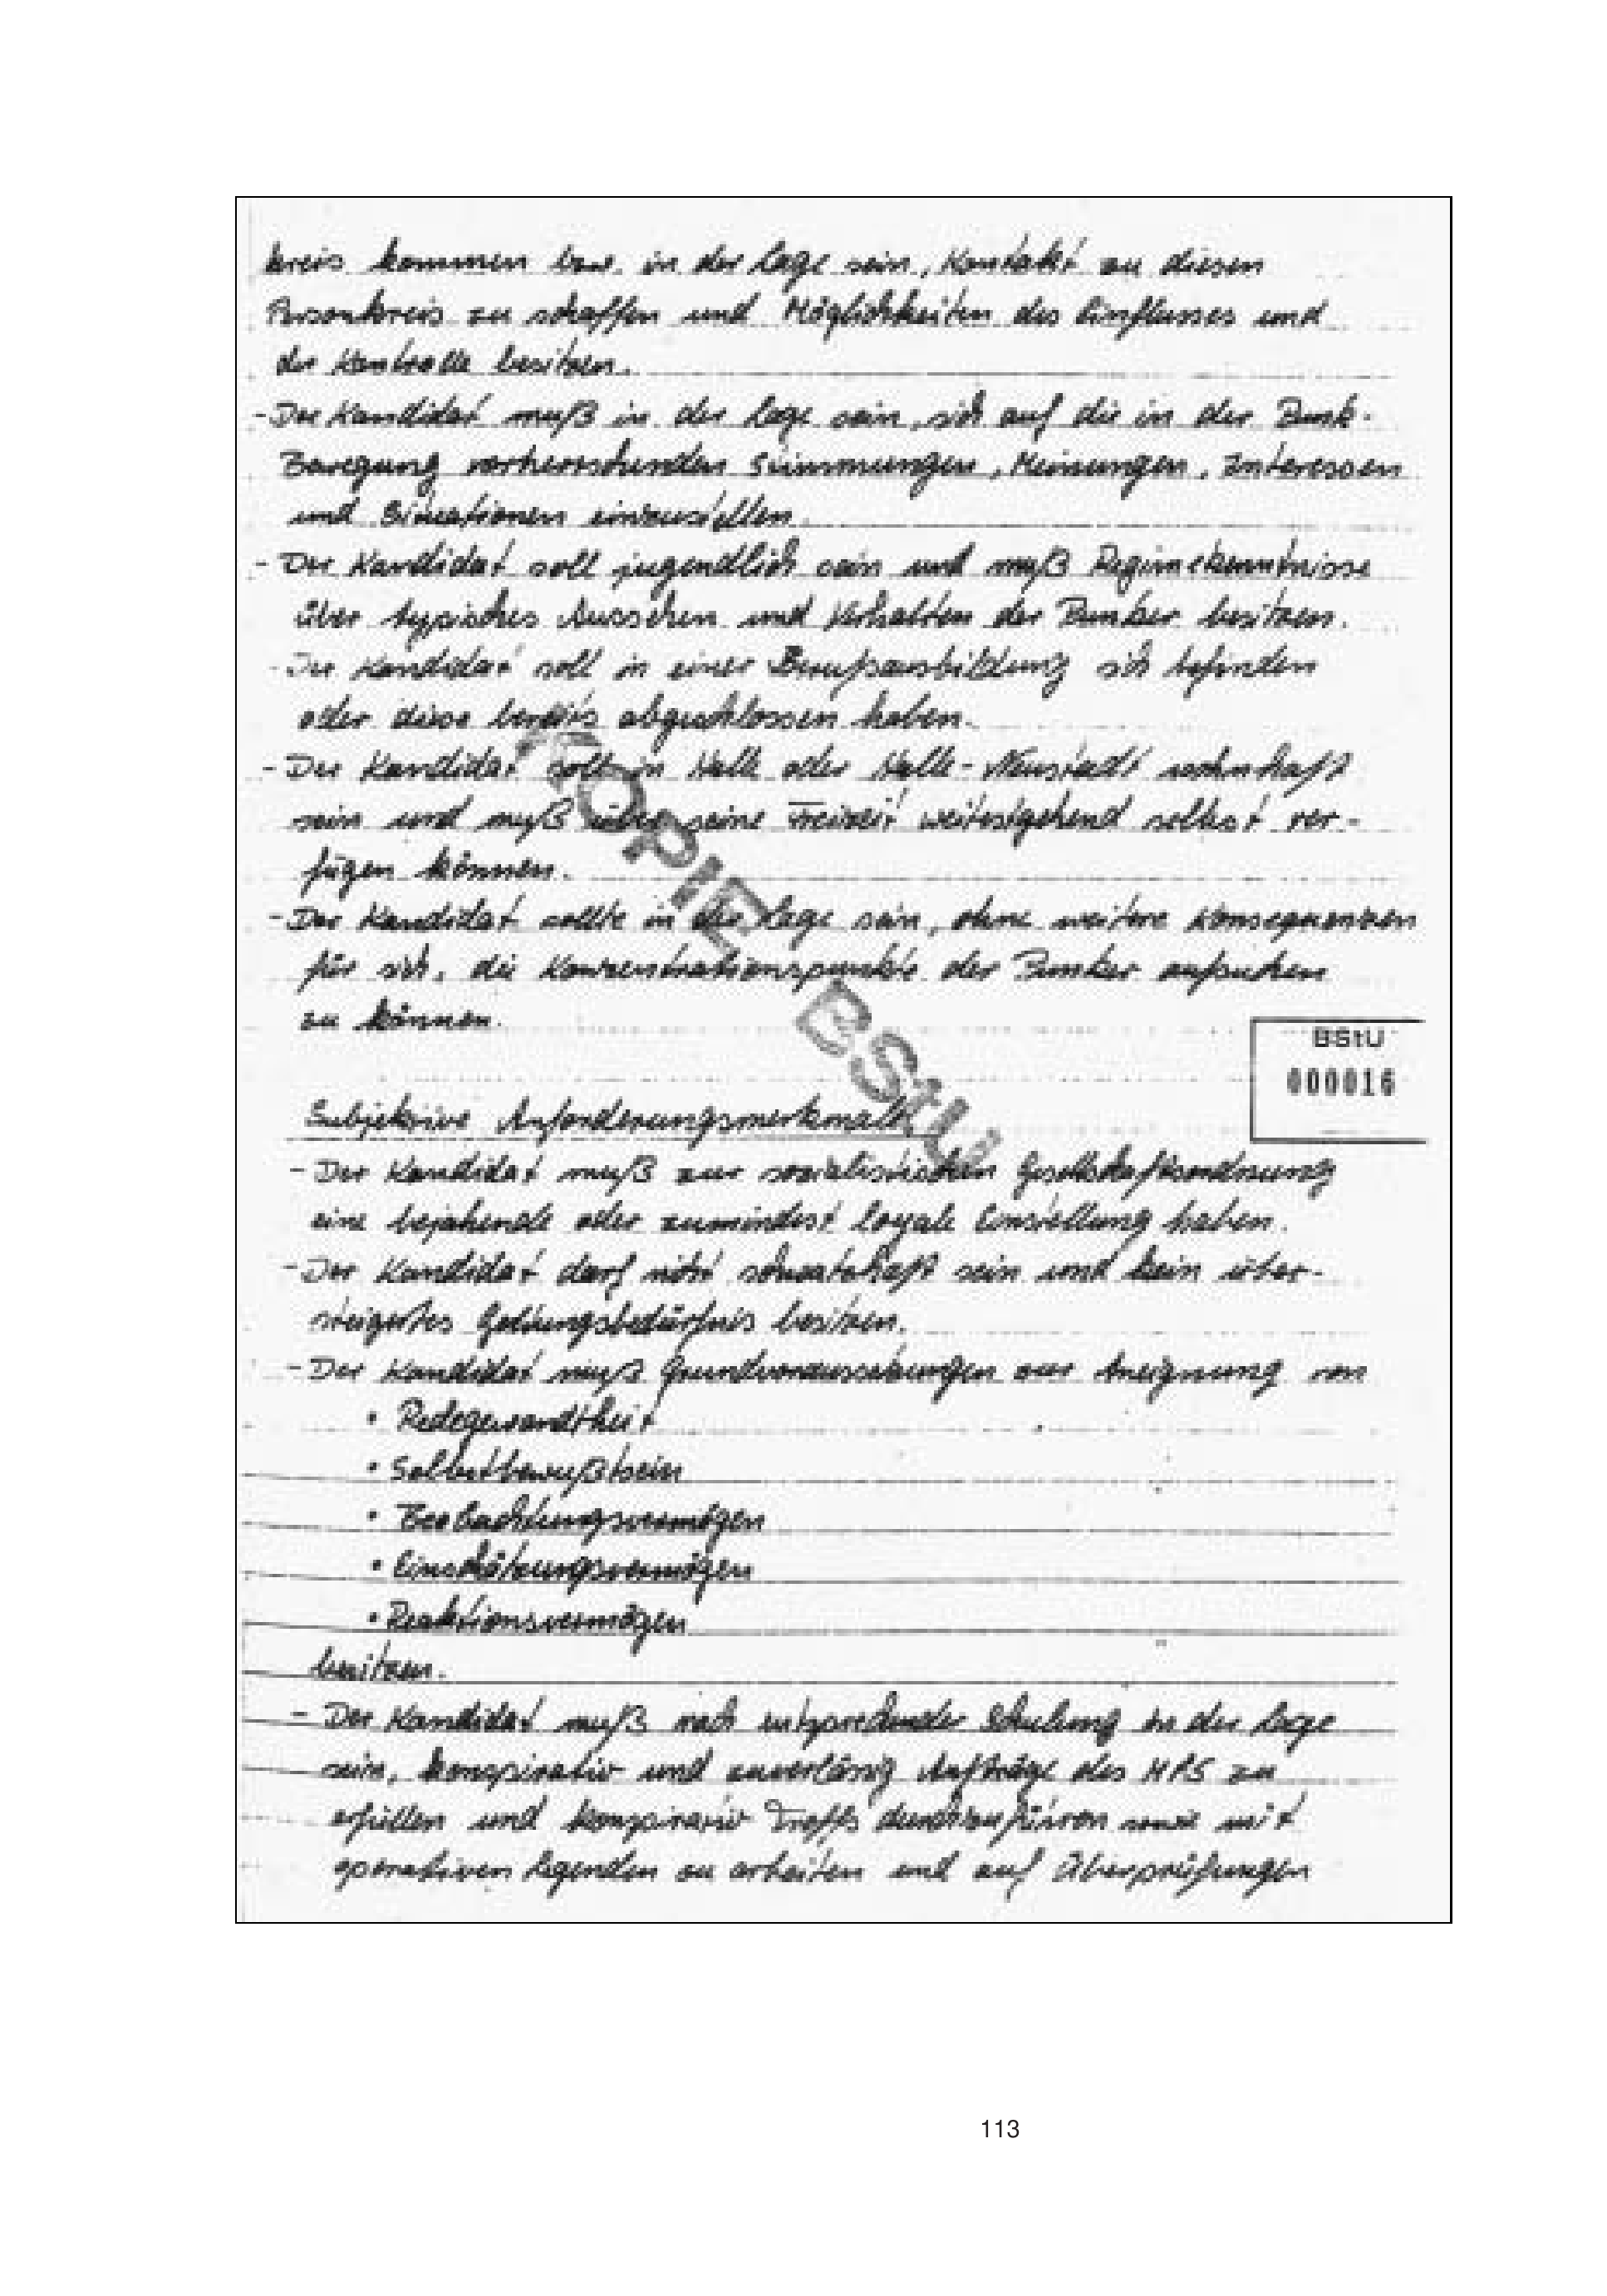 kreis kommen bzw. in der Lage sein, Kontakt zu diesen
Personkreis zu schaffen und Möglichkeiten des Einflusses und
der Kontrolle besitzen.
- Der Kandidat muß in der Lage sein, sich auf die in der Punk-
Bewegung vorherrschenden Stimmungen, Meinungen, Interessen
und Situationen einzustellen.
- Der Kandidat soll jugendlich sein und muß Regimekenntnisse
über typisches Aussehen und Verhalten der Punker besitzen.
- Der Kandidat soll in einer Berufsausbildung sich befinden
oder diese bereits abgeschlossen haben.
- Der Kandidat soll in Halle oder Halle-Neustadt wohnhaft
sein und muß über seine Freizeit weitestgehend selbst ver-
fügen können.
- Der Kandidat sollte in der Lage sein, ohne weitere Konsequenzen
für sich, die Konzentrationspunkte der Punker aufsuchen
zu können.
KOPIE BStU
BStU
000016
Subjektive Anforderungsmerkmale
- Der Kandidat muß zur sozialistischen Gesellschaftsordnung
eine bejahende oder zumindest loyale Einstellung haben.
- Der Kandidat darf nicht schwatzhaft sein und kein über-
steigertes Geltungsbedürfnis besitzen.
- Der Kandidat muß Grundvoraussetzungen zur Aneignung von
• Redegewandtheit
• Selbstbewußtsein
• Beobachtungsvermögen
• Einschätzungsvermögen
• Reaktionsvermögen
besitzen.
- Der Kandidat muß nach entsprechender Schulung in der Lage
sein, konspirativ und zuverlässig Aufträge des MfS zu
erfüllen und konspirativ Treffs durchzuführen sowie mit
operativen Legenden zu arbeiten und auf Überprüfungen
113